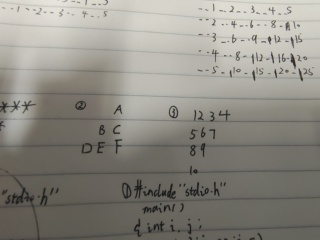 --1--2--3--4--5
--2--4--6--8--10
--3--6--9--12--15
--4--8--12--16--20
--5--10--15--20--25
--1--2--3--4--5
***
*
②
A
B C
D E F
③
1 2 3 4
5 6 7
8 9
10
"stdio.h"
① #include "stdio.h"
main()
{ int i, j;